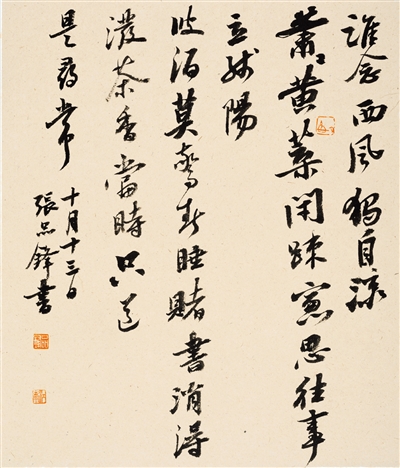 誰念西風獨自涼
蕭〻黄葉閉疎窓思往事
立殘陽
被酒莫驚春睡賭書消得
潑茶香當時只道
是尋常
十月十三日
張品鋒書